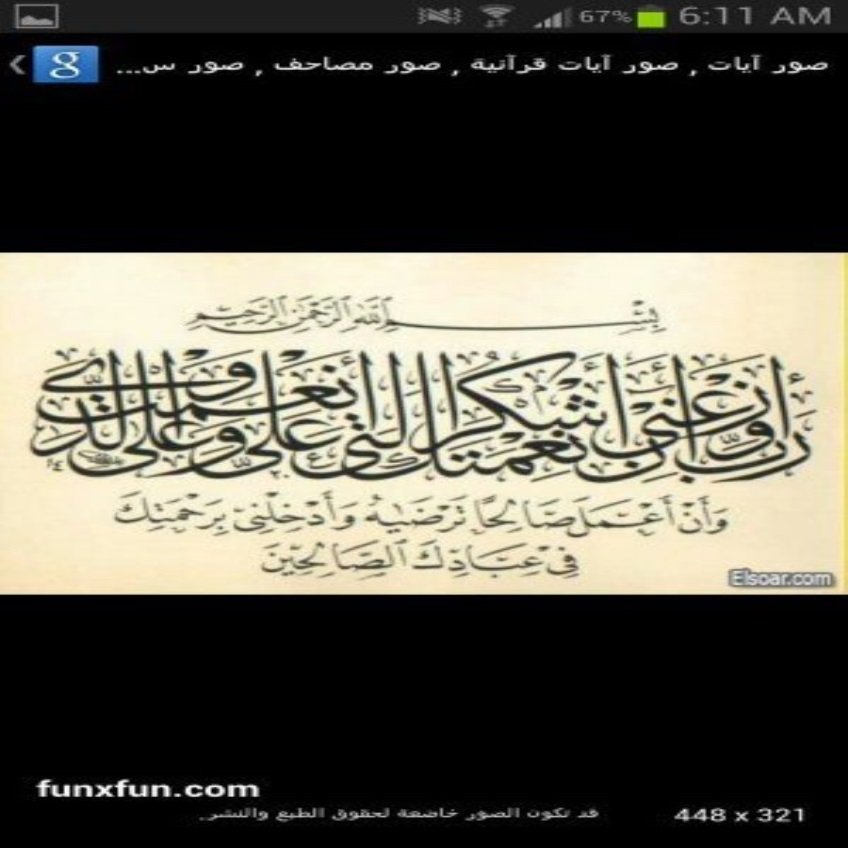 67% 6:11 AM
صور آيات , صور آيات قرآنية , صور مصاحف , صور س...
بِسْمِ اللَّهِ الرَّحْمَنِ الرَّحِيمِ
رَبِّ أَوْزِعْنِي أَنْ أَشْكُرَ نِعْمَتَكَ الَّتِي أَنْعَمْتَ عَلَيَّ وَعَلَى وَالِدَيَّ
وَأَنْ أَعْمَلَ صَالِحًا تَرْضَيٰهُ وَأَدْخِلْنِي بِرَحْمَتِكَ
فِي عِبَادِكَ الصَّالِحِينَ
Elsoar.com
funxfun.com
قد تكون الصور خاضعة لحقوق الطبع والنشر.
448 x 321